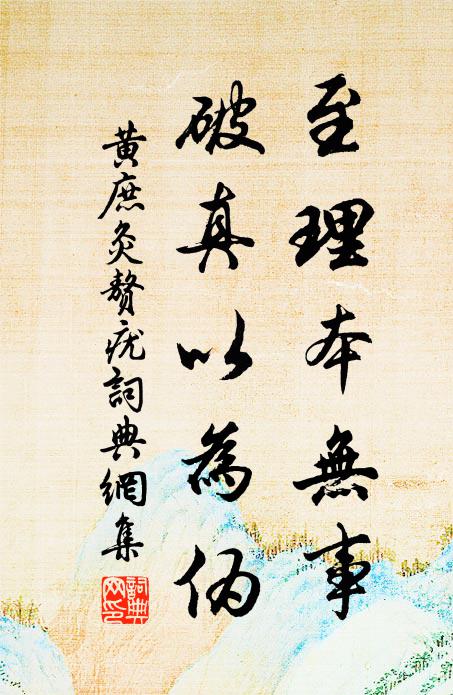 至理本無事
破真以為偽
黃庶灸贅疣詞典網集
詞典